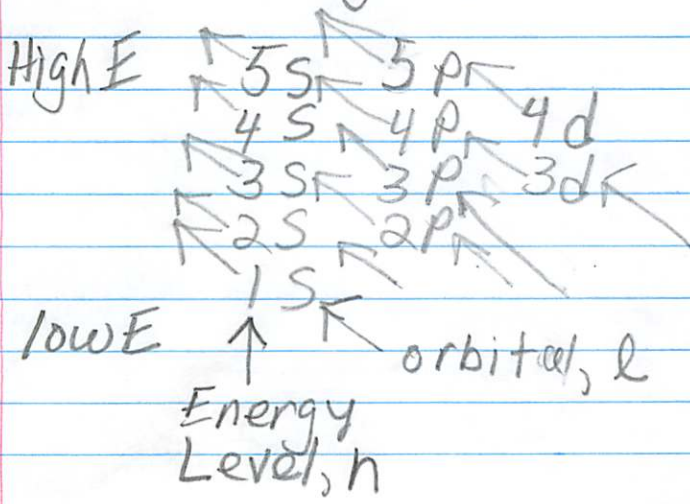 High E 5s 5p
4s 4p 4d
3s 3p 3d
2s 2p
1s
low E
orbital, l
Energy
Level, n